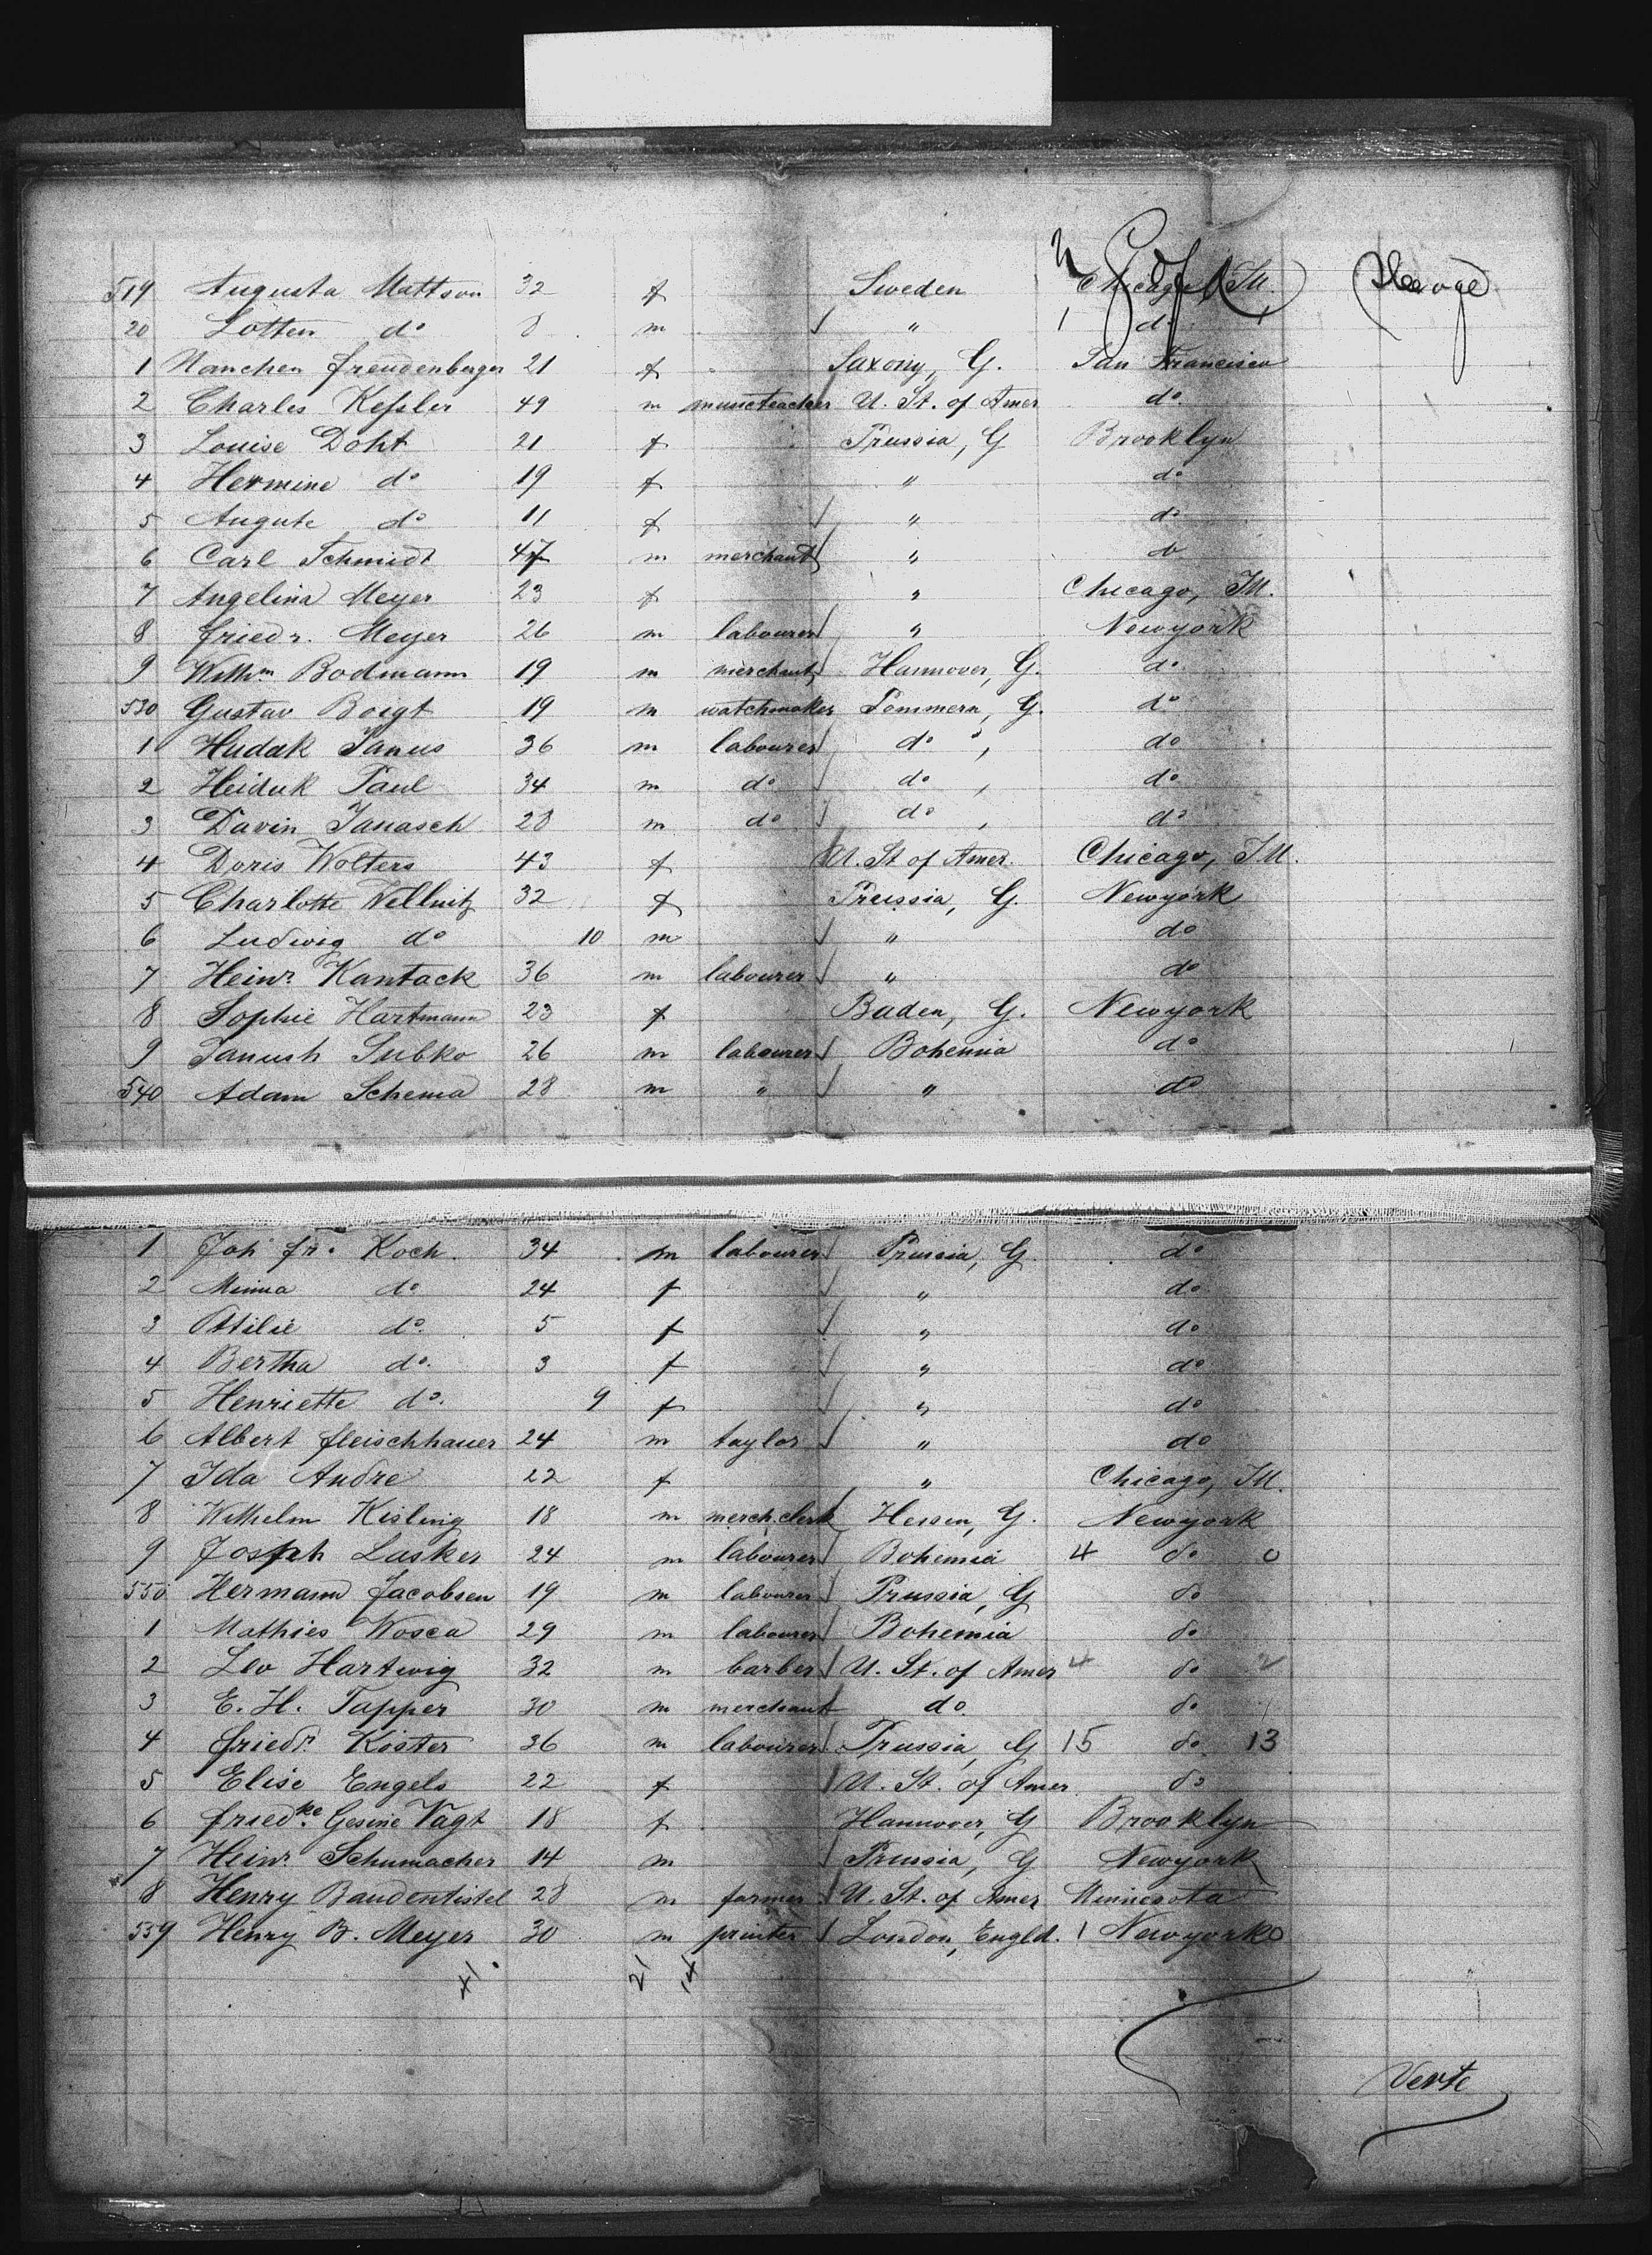 519 Augusta Mattson 32 f Sweden Chicago, Ill. Steerage
20 Lotten do 8 m " 1 do 1
1 Nanchen Freudenberger 21 f Saxony, G. San Francisco
2 Charles Keßler 49 m musicteacher U. St. of Amer do.
3 Louise Doht 21 f Prussia, G Brooklyn
4 Hermine do 19 f " do
5 Augute do 11 f " do
6 Carl Schmidt 47 m merchant " do
7 Angelina Meyer 23 f " Chicago, Ill.
8 Friedr. Meyer 26 m labourer " Newyork
9 Willhm Bodmann 19 m merchant Hannover, G. do
530 Gustav Boigt 19 m watchmaker Pommern, G. do
1 Hudak Janus 36 m labourer do " , do
2 Heiduk Paul 34 m do do , do
3 Davin Janasch 28 m do do , do
4 Doris Wolters 43 f U. St of Amer. Chicago, Ill.
5 Charlotte Vellnitz 32 f Preussia, G. Newyork
6 Ludwig do 10 m " do
7 Heinr. Kantack 36 m labourer " do
8 Sophie Hartmann 23 f Baden, G. Newyork
9 Janush Subko 26 m labourer Bohemia do
540 Adam Schema 28 m " " do
1 Joh Fr. Koch 34 m labourer Prussia, G do
2 Minna do 24 f " do
3 Ottilie do. 5 f " do
4 Bertha do. 3 f " do
5 Henriette do. 9 f " do
6 Albert Fleischhauer 24 m taylor " do
7 Ida Andre 22 f " Chicago, Ill.
8 Wilhelm Kisling 18 m merch. clerk Hessen, G. Newyork
9 Joseph Lasker 24 m labourer Bohemia 4 do 0
550 Hermann Jacobsen 19 m labourer Prussia, G do
1 Mathies Wosca 29 m labourer Bohemia do
2 Leo Hartwig 32 m barber U. St. of Amer 4 do 2
3 E. H. Tapper 30 m merchant do do
4 Friedr. Köster 36 m labourer Prussia, G 15 do 13
5 Elise Engels 22 f U. St. of Amer do
6 Friedke. Gesine Vagt 18 f Hannover, G Brooklyn
7 Heinr. Schumacher 14 m Prussia, G Newyork
8 Henry Baudentistel 28 m farmer U. St. of Amer Minnesota
559 Henry B. Meyer 30 m printer London, Engld. 1 Newyork 0
41. 21 14
Verte